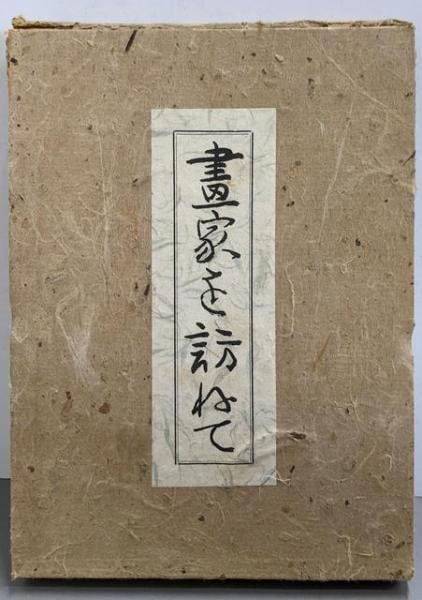 畫家を訪ねて